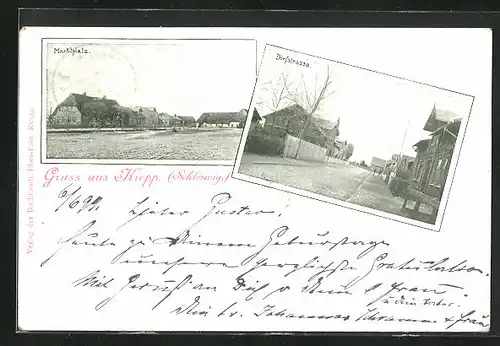 Marktplatz.
Dorfstrasse.
Gruss aus Kropp. (Schleswig.)
Verlag der Buchhandl. Eben-Ezer Kropp.
Lieber Gustav!
Heute zu Deinem Geburtstage
unsere herzlichste Gratulation.
Mit Gruß an Dich u Deine Frau
u dein Vater.
Dein tr. Johannes Schramm u Frau